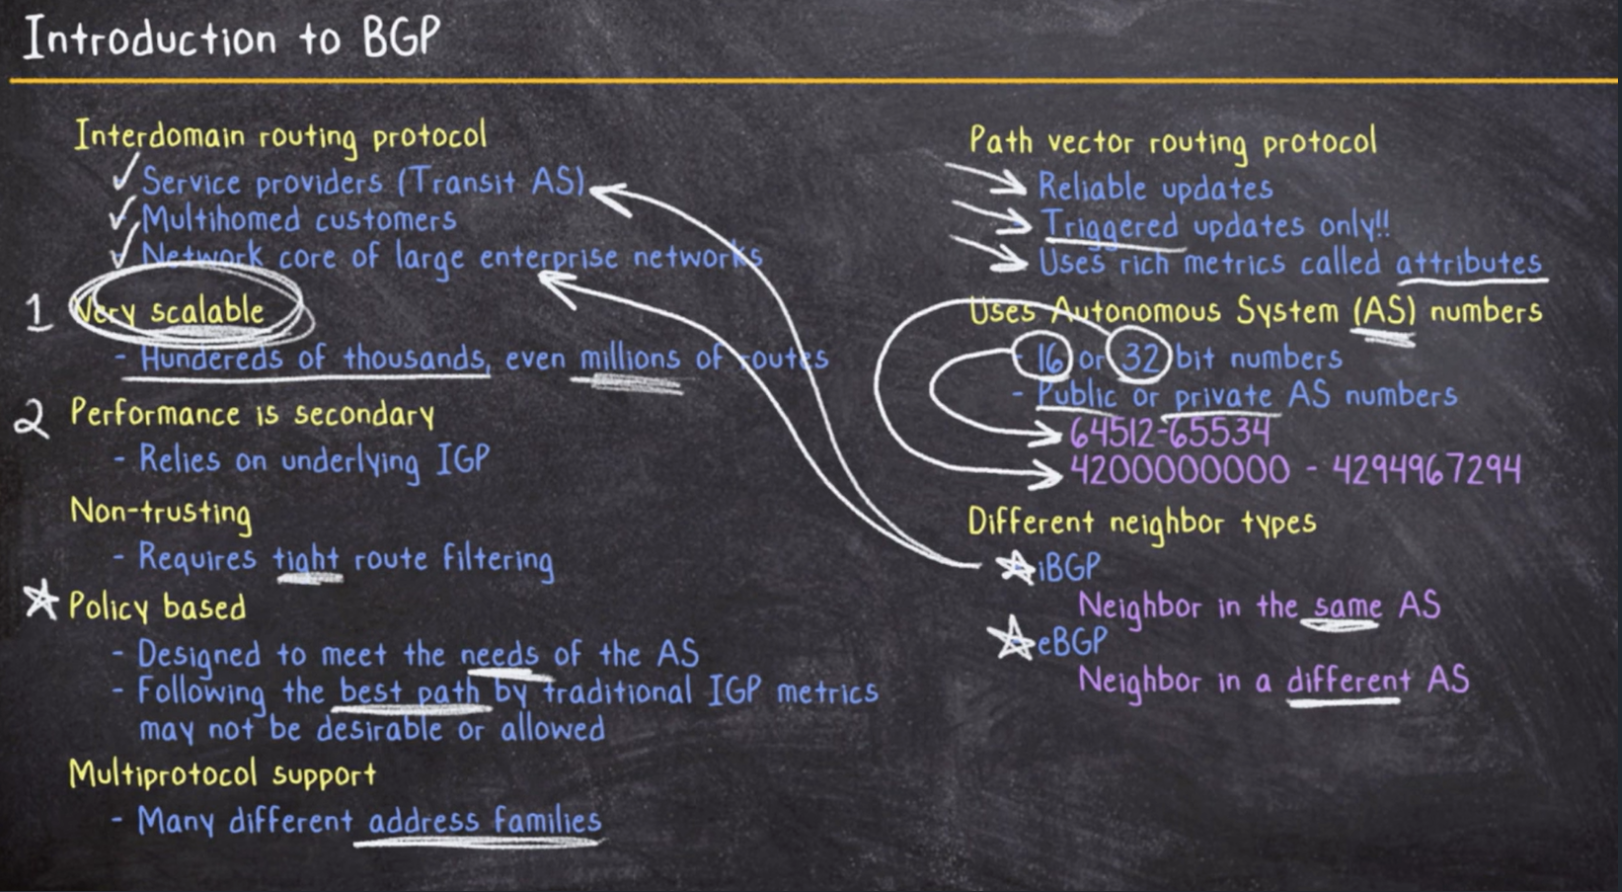 Introduction to BGP
Interdomain routing protocol
Service providers (Transit AS)
Multihomed customers
Network core of large enterprise networks
1 Very scalable
- Hundereds of thousands, even millions of routes
2 Performance is secondary
- Relies on underlying IGP
Non-trusting
- Requires tight route filtering
Policy based
- Designed to meet the needs of the AS
- Following the best path by traditional IGP metrics
may not be desirable or allowed
Multiprotocol support
- Many different address families
Path vector routing protocol
Reliable updates
Triggered updates only!!
Uses rich metrics called attributes
Uses Autonomous System (AS) numbers
- 16 or 32 bit numbers
- Public or private AS numbers
64512-65534
4200000000 - 4294967294
Different neighbor types
iBGP
Neighbor in the same AS
eBGP
Neighbor in a different AS